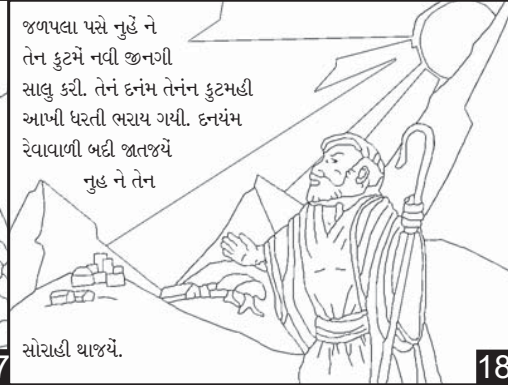 જળપલા પસે નુહેં ને
તેન કુટમેં નવી જીનગી
સાલુ કરી. તેનં દનંમ તેનંન કુટમહી
આખી ધરતી ભરાય ગયી. દનયંમ
રેવાવાળી બદી જાતજયેં
નુહ ને તેન
સોરાહી થાજયેં.
7
18